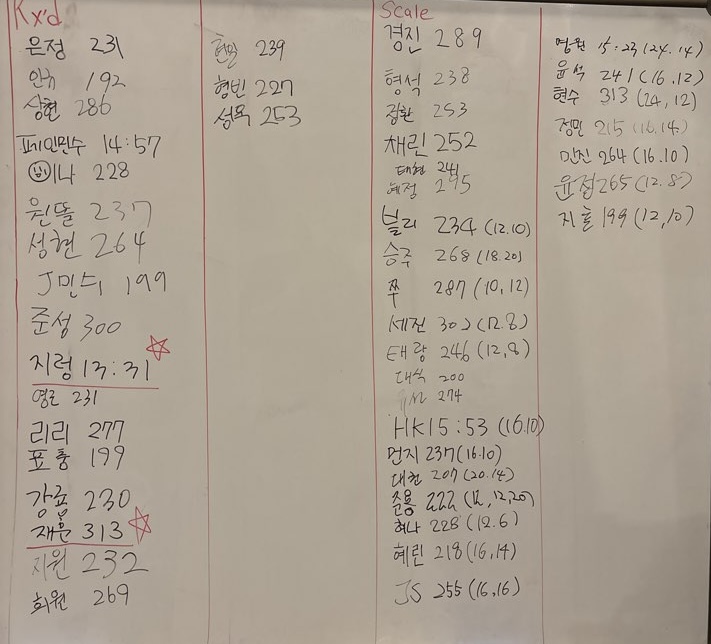 Rx'd
은정 231
민규 192
상현 286
페이민수 14:57
이나 228
원똘 237
성현 264
J민수 199
준성 300
지렁 13:31
영로 231
리리 277
표통 199
강훈 230
재훈 313
지원 232
희원 269
현민 239
형빈 227
성욱 253
Scale
경진 289
형석 238
253
채린 252
태현 241
예정 295
블리 234 (12.10)
승주 268 (18.20)
쭈 287 (10,12)
세진 302 (12.8)
태랑 246 (12,8)
대식 200
274
HK 15:53 (16.10)
먼지 237 (16.10)
대천 207 (20.14)
준용 222 (12,12,20)
허나 228 (12.6)
혜린 218 (16,14)
JS 255 (16,16)
영원 15:23 (24.14)
윤석 241 (16.12)
현수 313 (24,12)
정민 215 (16.14)
민진 264 (16.10)
윤정 265 (12.8)
지호 199 (12,10)